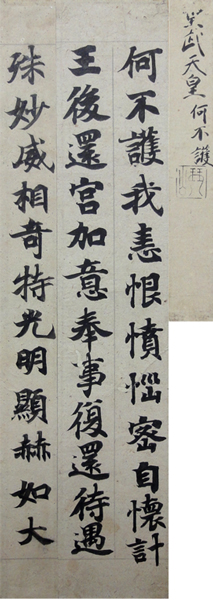 聖武天皇 何不護
何不護我恚恨憤惱密自懷計
王後還宮加意奉事復還待遇
殊妙威相奇特光明顯赫如大